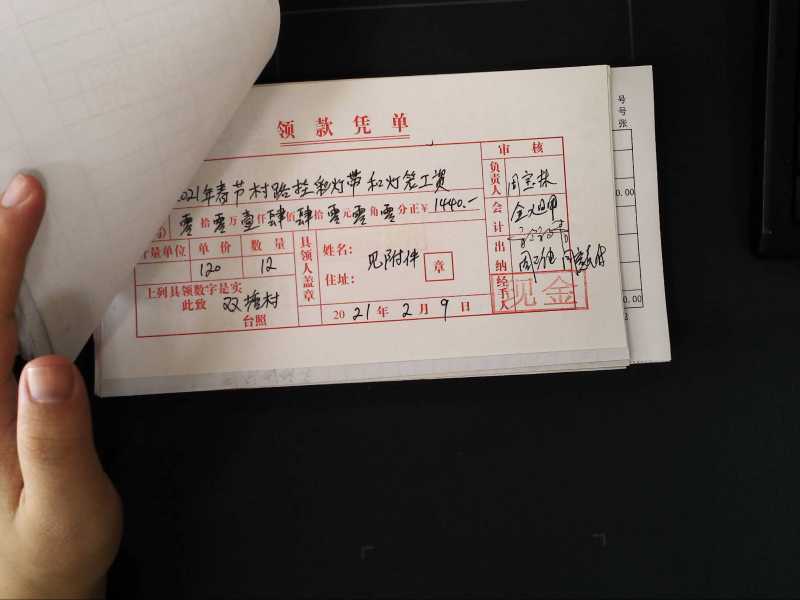 领款凭单
审核
2021年春节村路挂彩灯带和灯笼工资
零拾零万壹仟肆佰肆拾零元零角零分正¥1440.-
负责人
会计
出纳
经手人
计量单位 单价 数量
120 12
具领人盖章
姓名：
住址：
见附件
章
上列具领数字是实
此致 双塘村
台照
2021年2月9日
现金
号
号
张
0.00
0.00
2